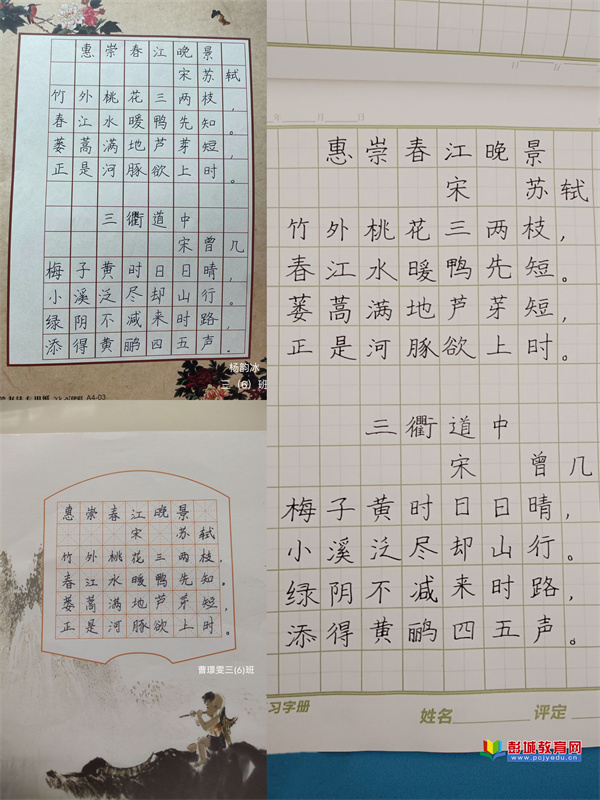 惠崇春江晚景
宋 苏轼
竹外桃花三两枝，
春江水暖鸭先知。
蒌蒿满地芦芽短，
正是河豚欲上时。
三衢道中
宋曾几
梅子黄时日日晴，
小溪泛尽却山行。
绿阴不减来时路，
添得黄鹂四五声.
杨韵冰
三（6）班
A4-03
惠崇春江晚景
宋 苏轼
竹外桃花三两枝，
春江水暖鸭先知。
蒌蒿满地芦芽短，
正是河豚欲上时。
曹璟雯三(6)班
年 月 日
惠崇春江晚景
宋 苏轼
竹外桃花三两枝，
春江水暖鸭先短。
蒌蒿满地芦芽短，
正是河豚欲上时。
三衢道中
宋 曾几
梅子黄时日日晴，
小溪泛尽却山行。
绿阴不减来时路，
添得黄鹂四五声。
习字册
姓名 评定
彭城教育网
www.pcjyedu.cn